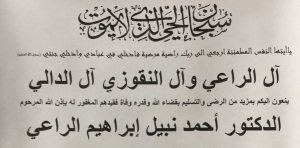 سبحان الحي الذي لا يموت
ياأيتها النفس المطمئنة ارجعي الى ربك راضية مرضية فادخلي في عبادي وادخلي جنتي
آل الراعي وآل النقوزي آل الدالي
ينعون اليكم بمزيد من الرضى والتسليم بقضاء الله وقدره وفاة فقيدهم المغفور له بإذن الله المرحوم
الدكتور أحمد نبيل إبراهيم الراعي